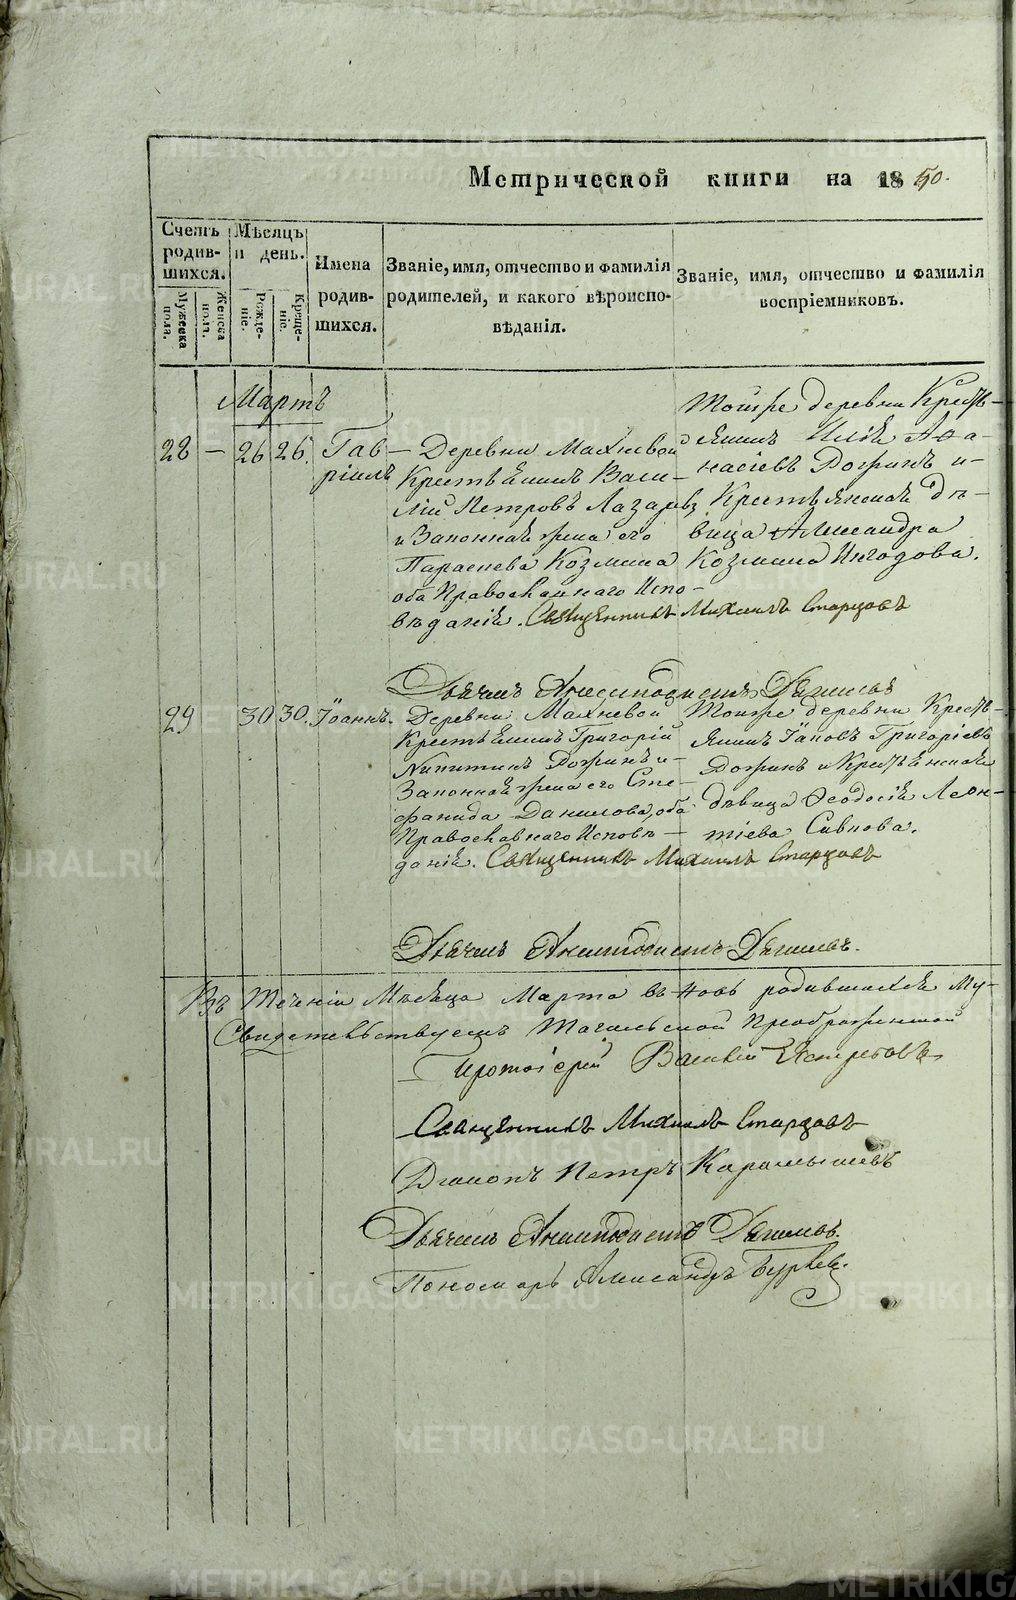 Метрической книги на 1850.
Счетъ родив- шихся.
Мѣсяцъ и день.
Имена родив- шихся.
Званіе, имя, отчество и фамилія родителей, и какого вѣроиспо- вѣданія.
Званіе, имя, отчество и фамилія воспріемниковъ.
Мужеска пола.
Женска пола.
Рожде- ніе.
Креще- ніе.
Мартъ
28 – 26 26 Гав-
ріилъ
Деревни Махневой
Крестьянинъ Васи-
лій Петровъ Лазаревъ
и Законная жена его
Параскева Козмина
оба Православнаго Испо-
вѣданія. Священникъ Михаилъ Старцовъ
Тойже деревни Кресть-
янинъ Илія Аѳа-
насіевъ и
Крестьянская дѣ-
вица Александра
Козмина
Дьячекъ Анемподистъ Дягилевъ
29 30 30. Іоаннъ.
Деревни Махневой
Крестьянинъ Григорій
Никитинъ и
Законная жена его Сте-
фанида Данилова, оба
Православнаго Исповѣ-
данія. Священникъ Михаилъ Старцовъ
Тойже деревни Кресть-
янинъ Іаковъ Григоріевъ
и Крестьянская
дѣвица Ѳеодосія Леон-
тіева
Дьячекъ Анемподистъ Дягилевъ.
Въ Теченіи Мѣсяца Марта въ родившихся Му-
Свидетельствуемъ Тагильской Преображенской
Протоіерей Василій Ястребовъ
Священникъ Михаилъ Старцовъ
Діаконъ Петръ Карамышевъ
Дьячекъ Анемподистъ Дягилевъ.
Пономарь Александръ
METRIKI.GASO-URAL.RU